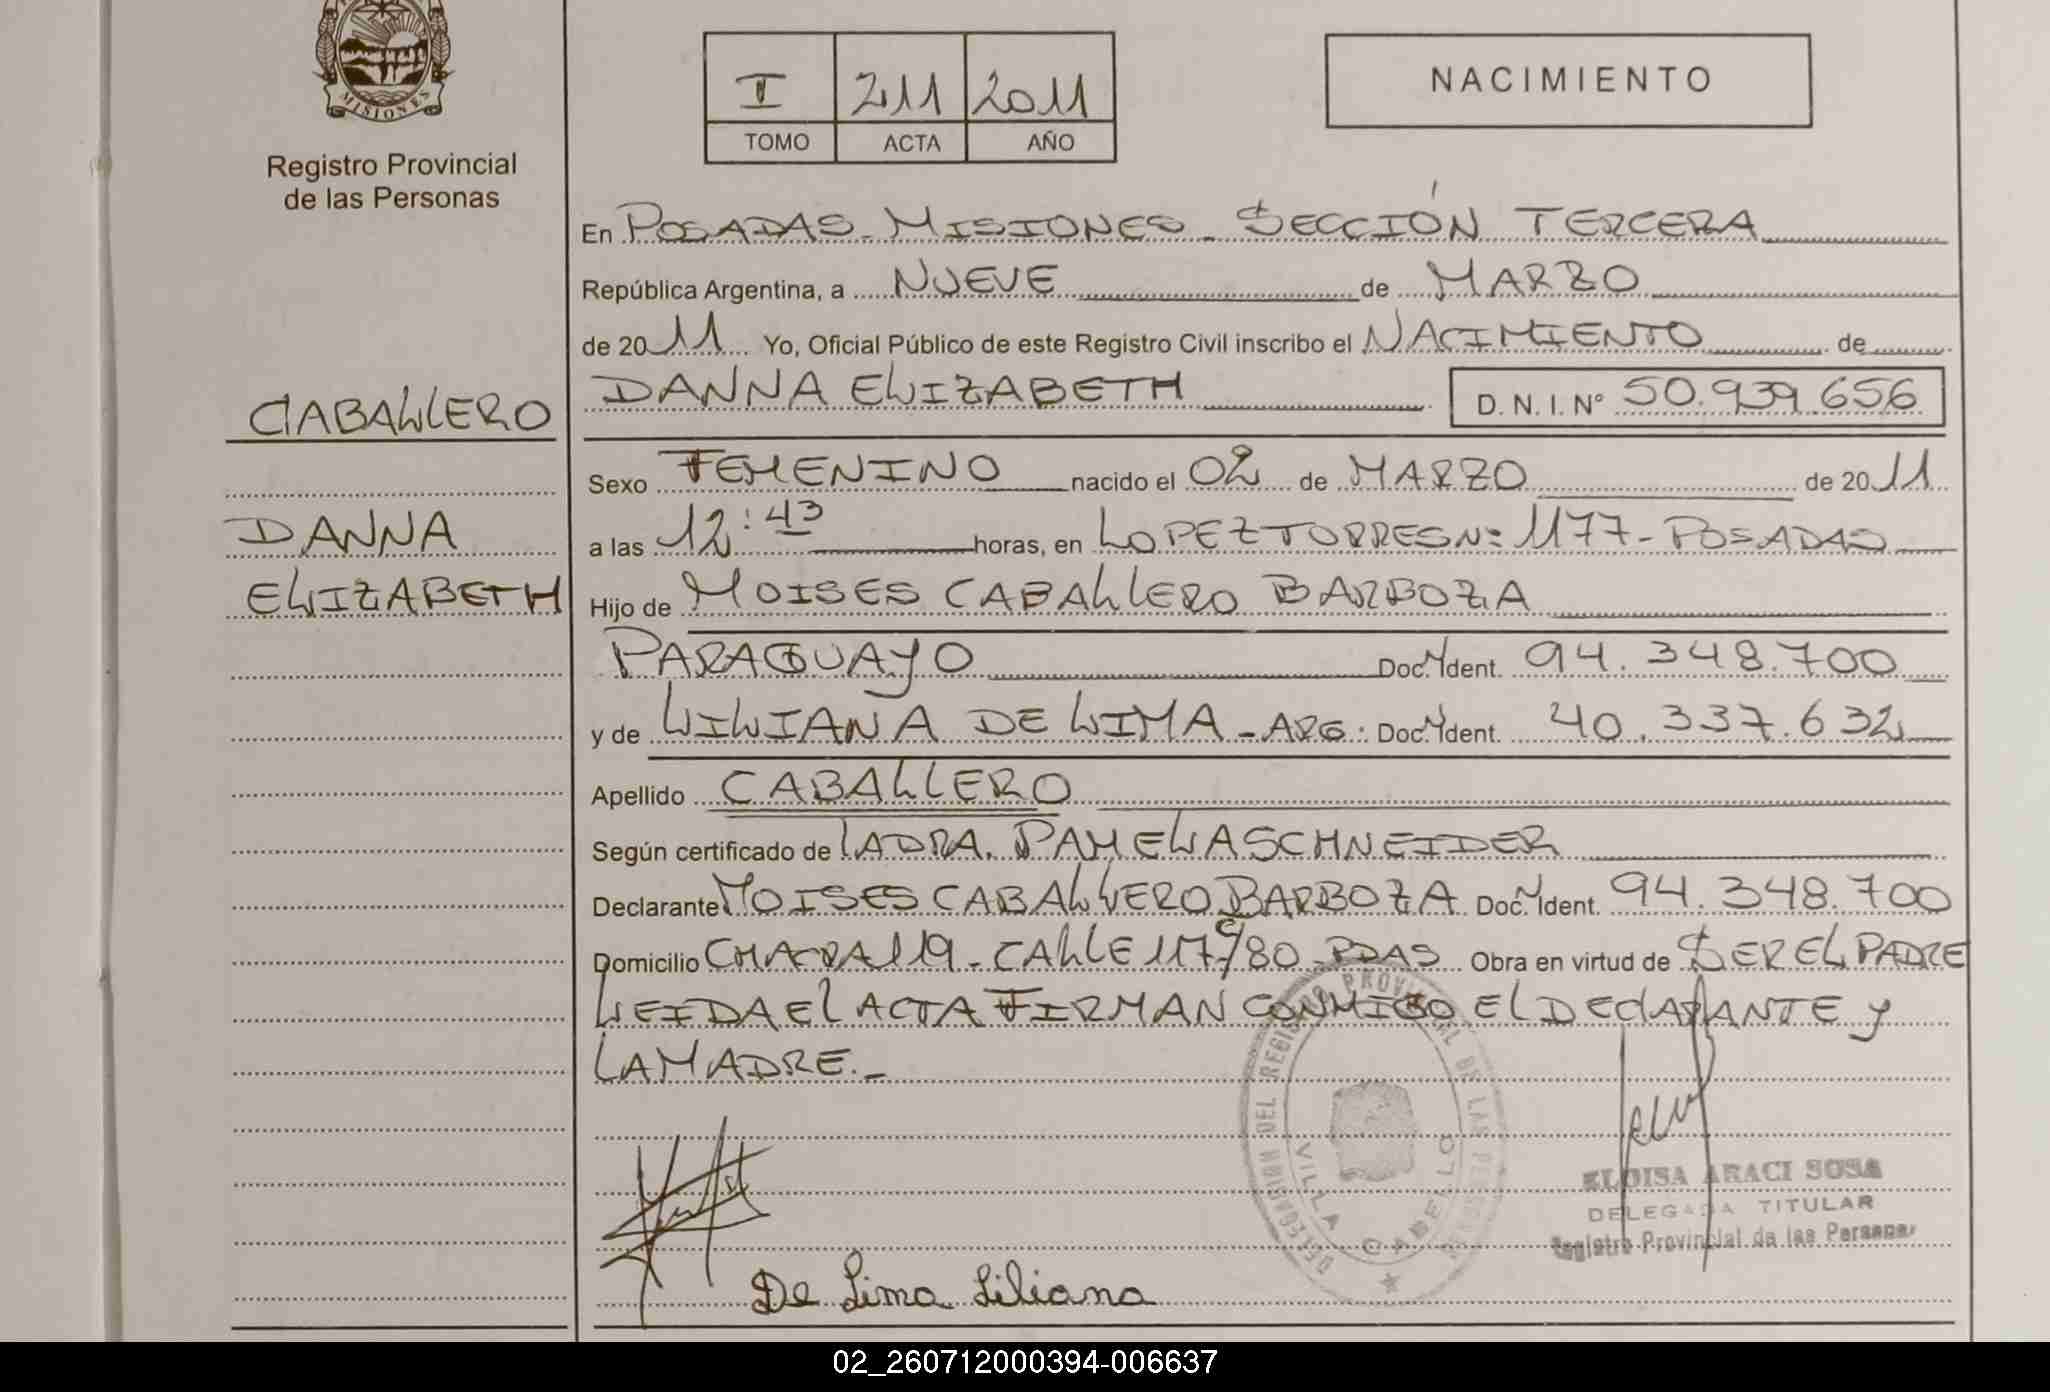 MISIONES
Registro Provincial
de las Personas
I 211 2011
TOMO ACTA AÑO
NACIMIENTO
En POSADAS - MISIONES - SECCIÓN TERCERA
República Argentina, a NUEVE de MARZO
de 2011 Yo, Oficial Público de este Registro Civil inscribo el NACIMIENTO de
CABALLERO
DANNA ELIZABETH D. N. I. Nº 50.939.656
Sexo FEMENINO nacido el 02 de MARZO de 2011
DANNA
a las 12:43 horas, en LOPEZ TORRES Nº 1177 - POSADAS
ELIZABETH
Hijo de MOISES CABALLERO BARBOZA
PARAGUAYO Doc. Ident. 94.348.700
y de LILIANA DE LIMA - ARG. Doc. Ident. 40.337.632
Apellido CABALLERO
Según certificado de LA DRA. PAMELA SCHNEIDER
Declarante MOISES CABALLERO BARBOZA Doc. Ident. 94.348.700
Domicilio CHACRA 119 - CALLE 117 c/80 - PDAS Obra en virtud de SER EL PADRE
LEIDA EL ACTA FIRMAN CONMIGO EL DECLARANTE Y
LA MADRE.-
DELEGACION DEL REGISTRO PROVINCIAL DE LAS PERSONAS
VILLA CABELLO
ELOISA ARACI SOSA
DELEGADA TITULAR
Registro Provincial de las Personas
De Lima Liliana
02_260712000394-006637